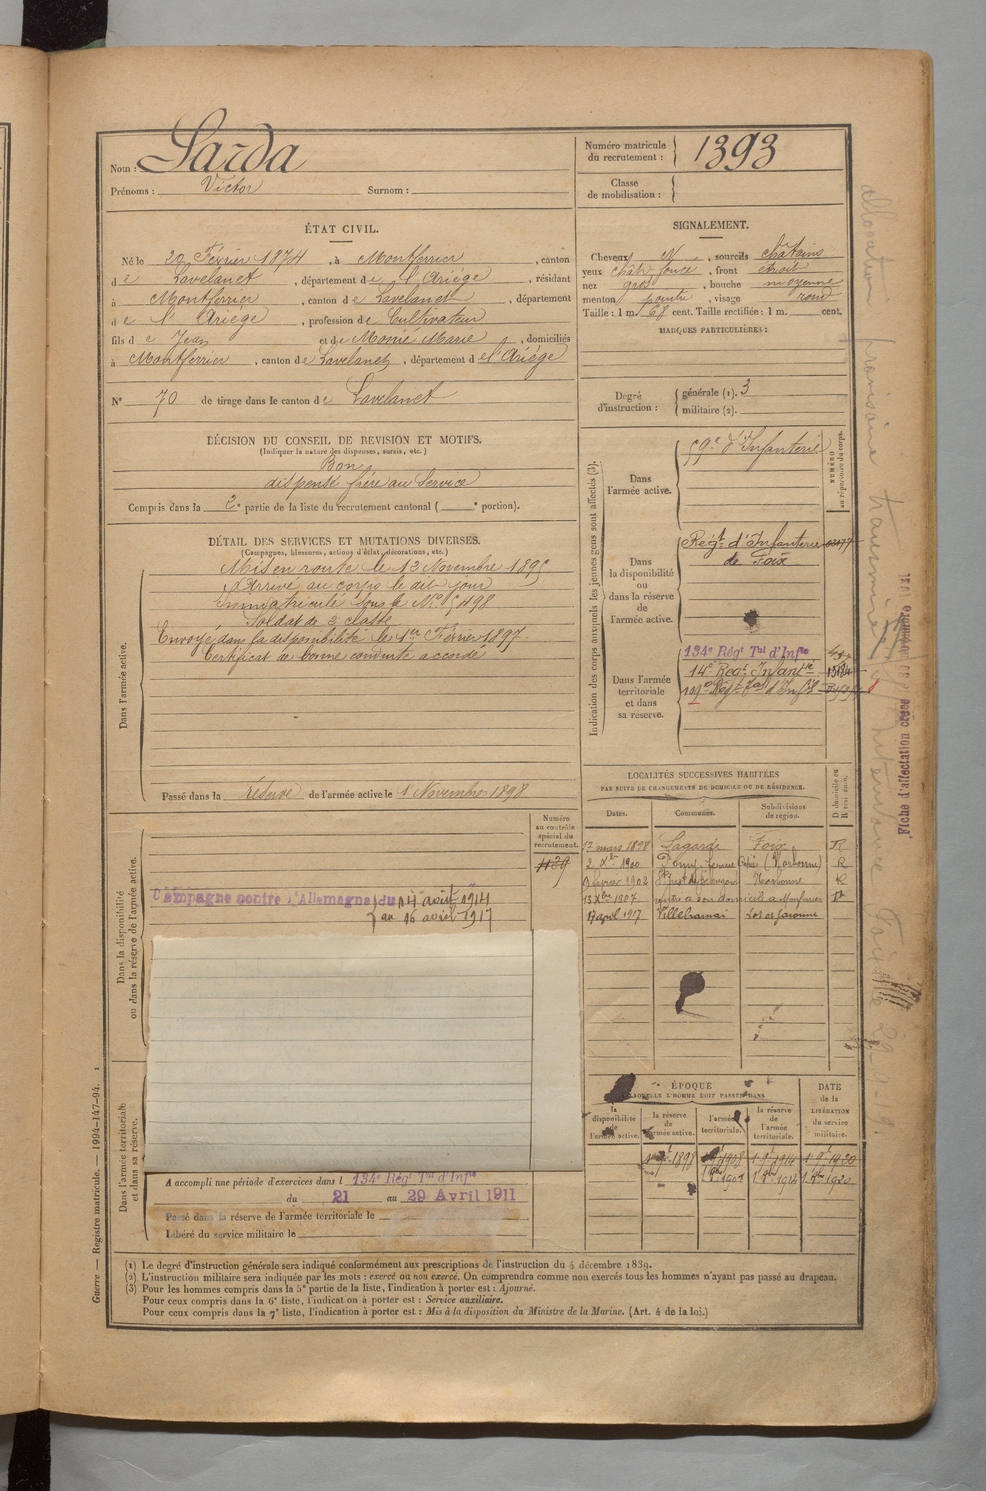 Nom : Sarda
Prénoms : Victor Surnom :
Numéro matricule du recrutement : 1393
Classe de mobilisation :
ÉTAT CIVIL.
Né le Février 1874, à Montferrier, canton
de Lavelanet, département de l'Ariège, résidant
à Montferrier, canton de Lavelanet, département
de l'Ariège, profession de Cultivateur
fils de Jean et de Marie, domiciliés
à Montferrier, canton de Lavelanet, département de l'Ariège
N° 70 de tirage dans le canton de Lavelanet
SIGNALEMENT.
Cheveux N, sourcils châtains
yeux chât. foncé, front étroit
nez gros, bouche moyenne
menton pointu, visage rond
Taille : 1 m. 68 cent. Taille rectifiée : 1 m. cent.
MARQUES PARTICULIÈRES :
Degré d'instruction : générale (1). 3
militaire (2).
DÉCISION DU CONSEIL DE REVISION ET MOTIFS.
(Indiquer la nature des dispenses, sursis, etc.)
Bon
dispensé frère au Service
Compris dans la 2e partie de la liste du recrutement cantonal ( e portion).
DÉTAIL DES SERVICES ET MUTATIONS DIVERSES.
(Campagnes, blessures, actions d'éclat, décorations, etc.)
Dans l'armée active.
Mis en route le 13 Novembre 1895
Arrivé au corps le dit jour
Immatriculé sous le No 5498
Soldat de 2e classe
Envoyé dans la disponibilité le 1er Février 1897
Certificat de bonne conduite accordé
Passé dans la réserve de l'armée active le 1 Novembre 1898
Indication des corps auxquels les jeunes gens sont affectés (3).
NUMÉRO au répertoire du corps.
Dans l'armée active.
59e d'Infanterie
Dans la disponibilité ou dans la réserve de l'armée active.
Régt d'Infanterie de Foix
Dans l'armée territoriale et dans sa réserve.
134e Régt Tal d'Infie
14e Régt Infantie
LOCALITÉS SUCCESSIVES HABITÉES
PAR SUITE DE CHANGEMENTS DE DOMICILE OU DE RÉSIDENCE.
Dates. Communes. Subdivisions de région. D domicile ou R résidence.
17 mars 1898 Lagarde Foix R
2 Xbre 1900 (Narbonne) R
9 février 1902 Narbonne R
13 Xbre 1907 rentre à son domicile à Montferrier D
17 april 1917 Lot et Garonne
Dans la disponibilité ou dans la réserve de l'armée active.
Numéro au contrôle spécial du recrutement.
1139
Campagne contre l'Allemagne du 14 août 1914
au 16 avril 1917
Dans l'armée territoriale et dans sa réserve.
A accompli une période d'exercices dans l 134e Régt Tal d'Infie
du 21 au 29 Avril 1911
Passé dans la réserve de l'armée territoriale le
Libéré du service militaire le
ÉPOQUE
À LAQUELLE L'HOMME DOIT PASSER DANS
la disponibilité de l'armée active.
la réserve de l'armée active.
l'armée territoriale.
la réserve de l'armée territoriale.
DATE de la LIBÉRATION du service militaire.
(1) Le degré d'instruction générale sera indiqué conformément aux prescriptions de l'instruction du 4 décembre 1889.
(2) L'instruction militaire sera indiquée par les mots : exercé ou non exercé. On comprendra comme non exercés tous les hommes n'ayant pas passé au drapeau.
(3) Pour les hommes compris dans la 5e partie de la liste, l'indication à porter est : Ajourné.
Pour ceux compris dans la 6e liste, l'indication à porter est : Service auxiliaire.
Pour ceux compris dans la 7e liste, l'indication à porter est : Mis à la disposition du Ministre de la Marine. (Art. 4 de la loi.)
Guerre — Registre matricule. — 1994-147-94. 1
Fiche d'affectation créée